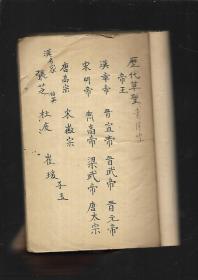 歷代草聖
帝王
漢章帝 晉宣帝 晉武帝 晉元帝
宋明帝 齊高帝 梁武帝 唐太宗
唐高宗 宋徽宗
漢名家
張芝 伯英 杜度 崔瑗 子玉